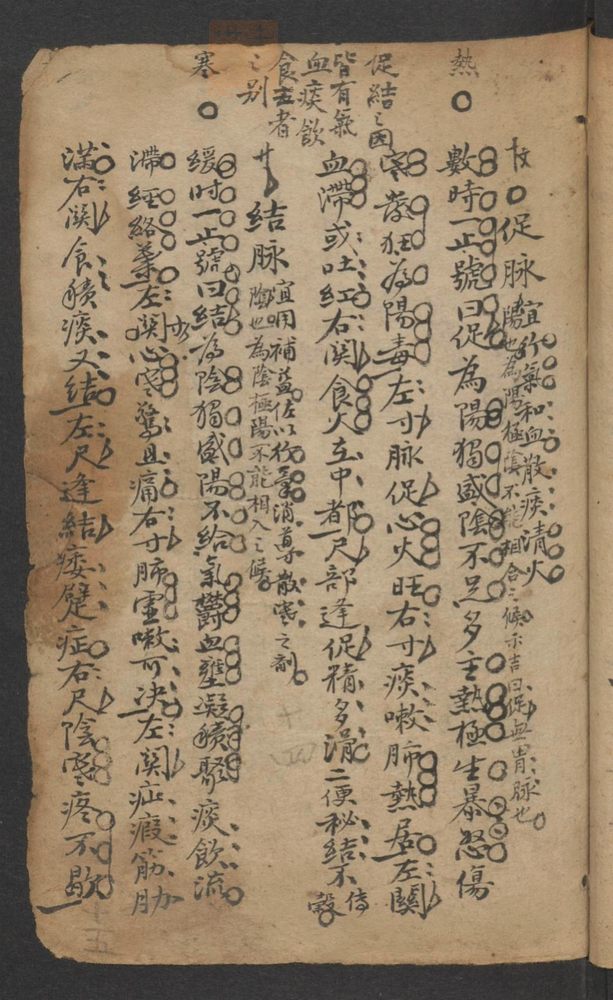 熱
促脉 宜行氣和血散痰清火
陽也為陽極陰不能相合之候
數時一止號曰促為陽獨盛陰不足多主熱極生暴怒傷
寒發狂為陽毒左寸脉促心火旺右寸痰嗽肺熱居左關
血滯或吐紅右關食火立中都尺部逢促精多滑二便秘結不傳
促結之因
皆有氣
血痰飲
食五者
之别
結脉 宜用補益佐以行氣消導散寒之劑
陰也為陰極陽不能相入之候
寒
緩时一止號曰結為陰獨盛陽不給氣鬱血壅凝積聚痰飲流
滯經絡兼左關心寒驚且痛右寸肺虛嗽可决左關疝瘕筋肋
滿右關食積痰又結左尺逢結痿躄症右尺陰寒疼不歇